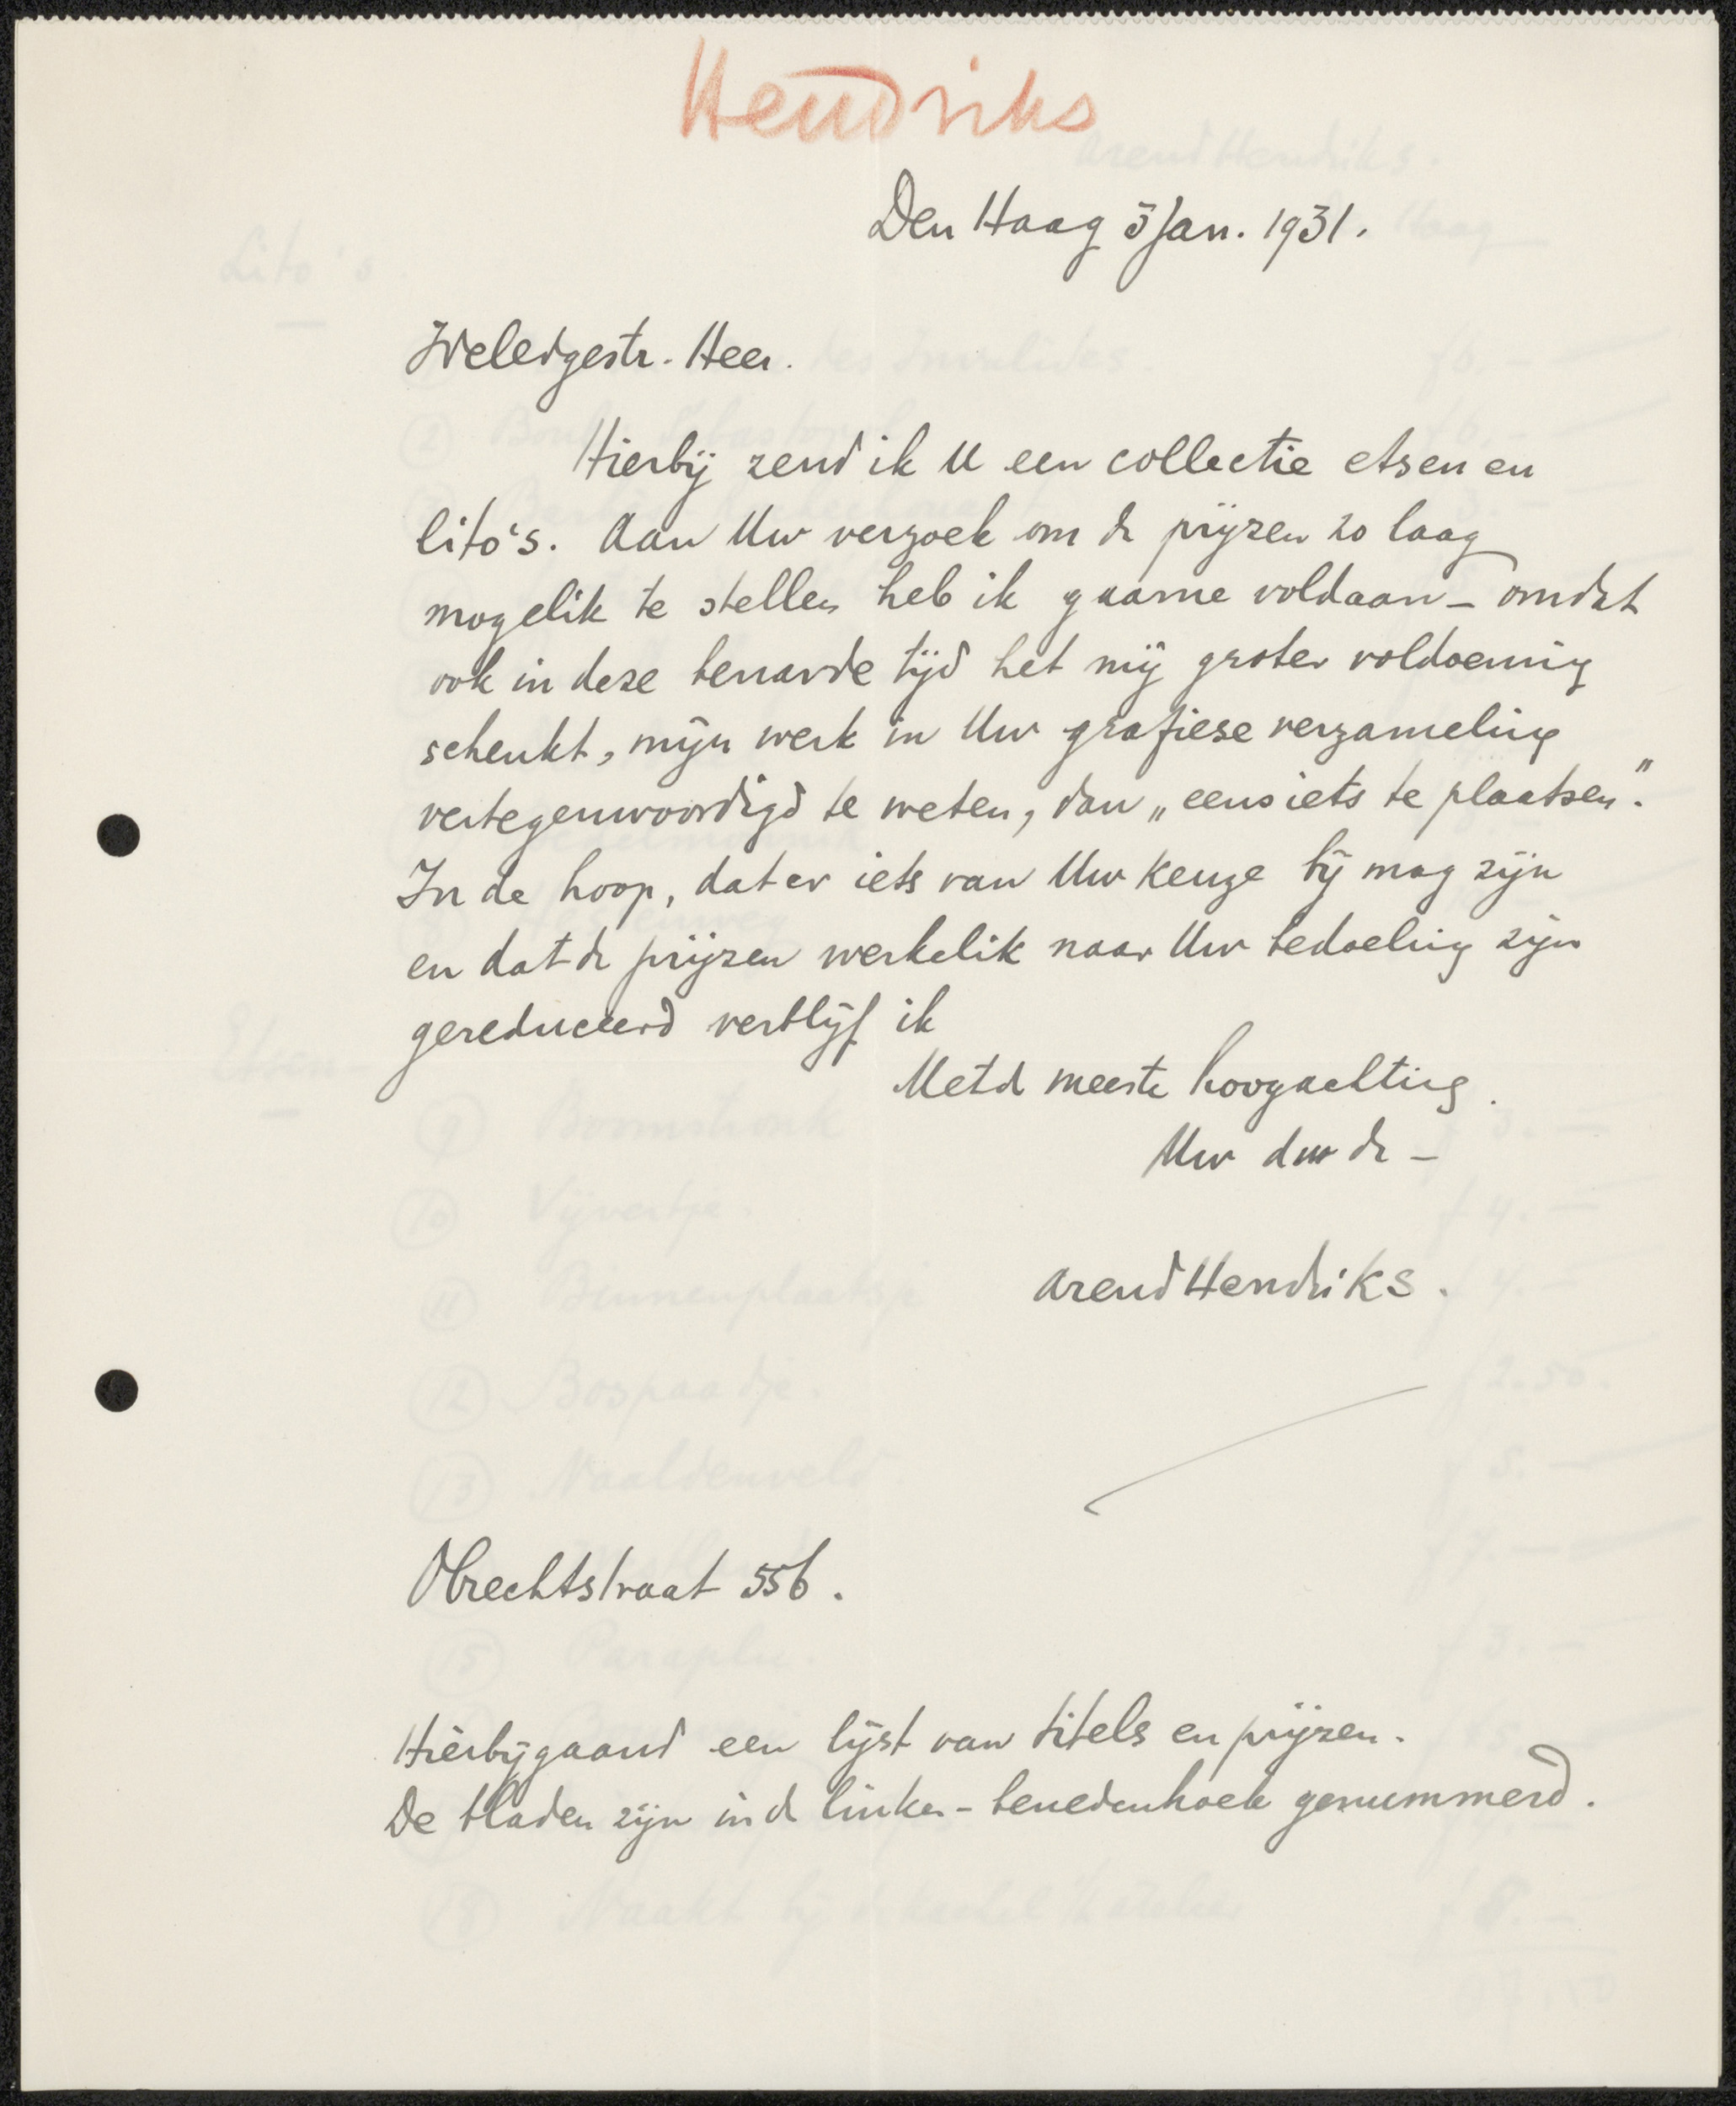 Hendriks
Den Haag 5 Jan. 1931.
Weledgestr. Heer.
Hierbij zend ik U een collectie etsen en
lito's. Aan Uw verzoek om de prijzen zo laag
mogelik te stellen heb ik gaarne voldaan – omdat
ook in deze benarde tijd het mij groter voldoening
schenkt, mijn werk in Uw grafiese verzameling
vertegenwoordigd te weten, dan „eens iets te plaatsen".
In de hoop, dat er iets van Uw keuze bij mag zijn
en dat de prijzen werkelik naar Uw bedoeling zijn
gereduceerd verblijf ik
Met d meeste hoogachting.
Uw dw dr –
Arend Hendriks.
Obrechtstraat 556.
Hierbijgaand een lijst van titels en prijzen.
De bladen zijn in d linker-benedenhoek genummerd.